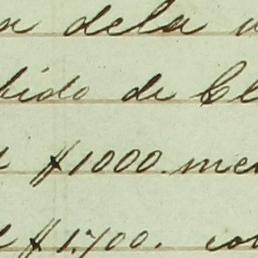 dela
bido de
$1000. me
$1.700. co